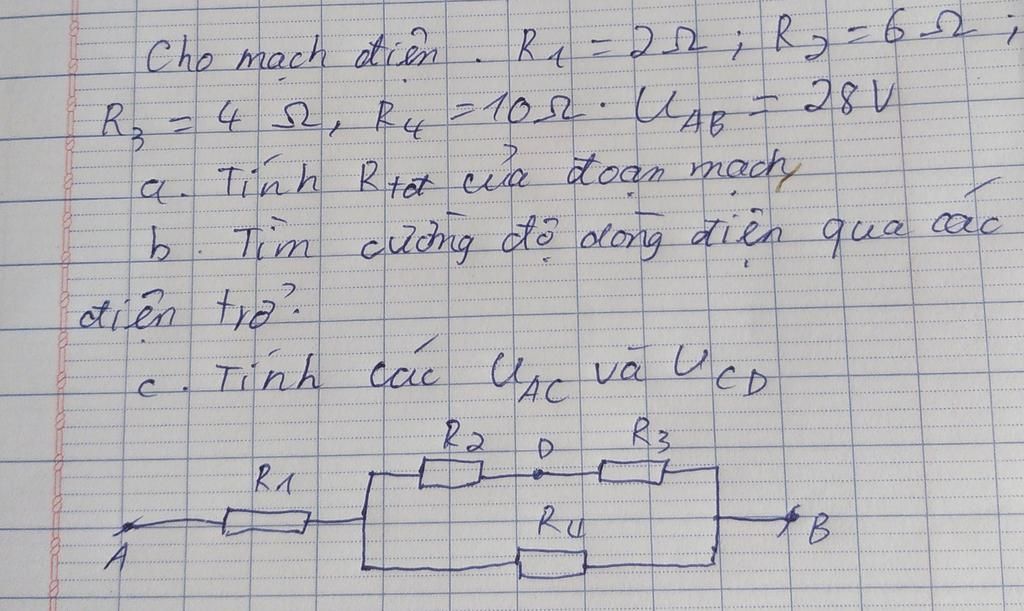 Cho mạch điện. R1 = 2Ω; R2 = 6Ω;
R3 = 4 Ω, R4 = 10Ω. UAB = 28V
a. Tính Rtđ của đoạn mạch
b. Tìm cường độ dòng điện qua các
điện trở?
c. Tính các UAC và UCD
R2 D R3
R1
R4
A B